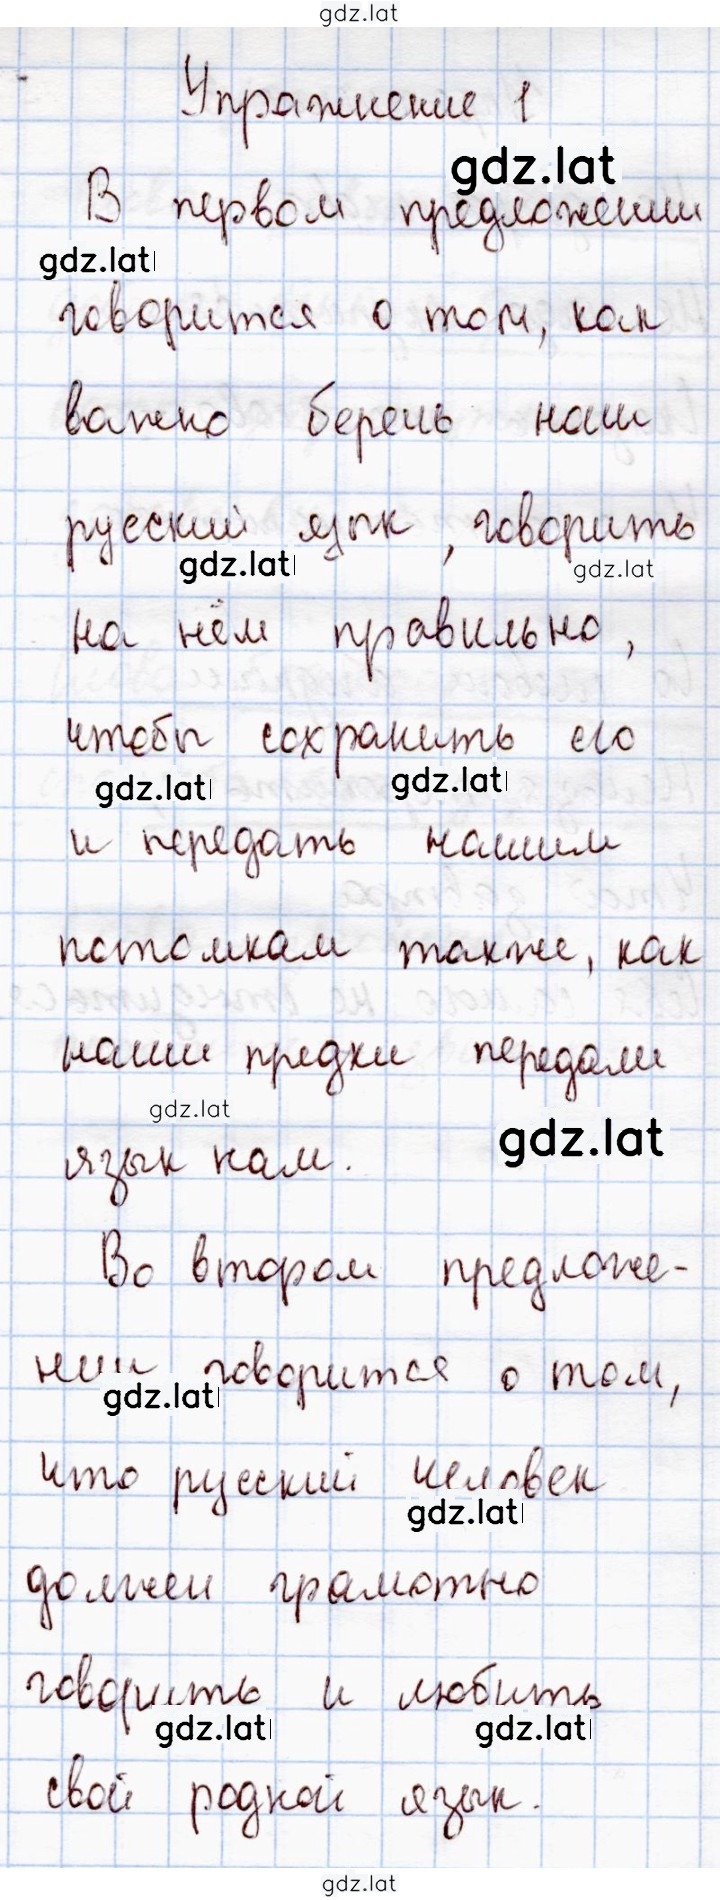 gdz.lat
Упражнение 1
gdz.lat
В первом предложении
gdz.lat
говорится о том, как
важно беречь наш
русский язык, говорить
gdz.lat gdz.lat
на нём правильно,
чтобы сохранить его
gdz.lat gdz.lat
и передать нашим
потомкам также, как
наши предки передали
gdz.lat gdz.lat
язык нам.
Во втором предложе-
нии говорится о том,
gdz.lat
что русский человек
gdz.lat
должен грамотно
говорить и любить
gdz.lat gdz.lat
свой родной язык.
gdz.lat